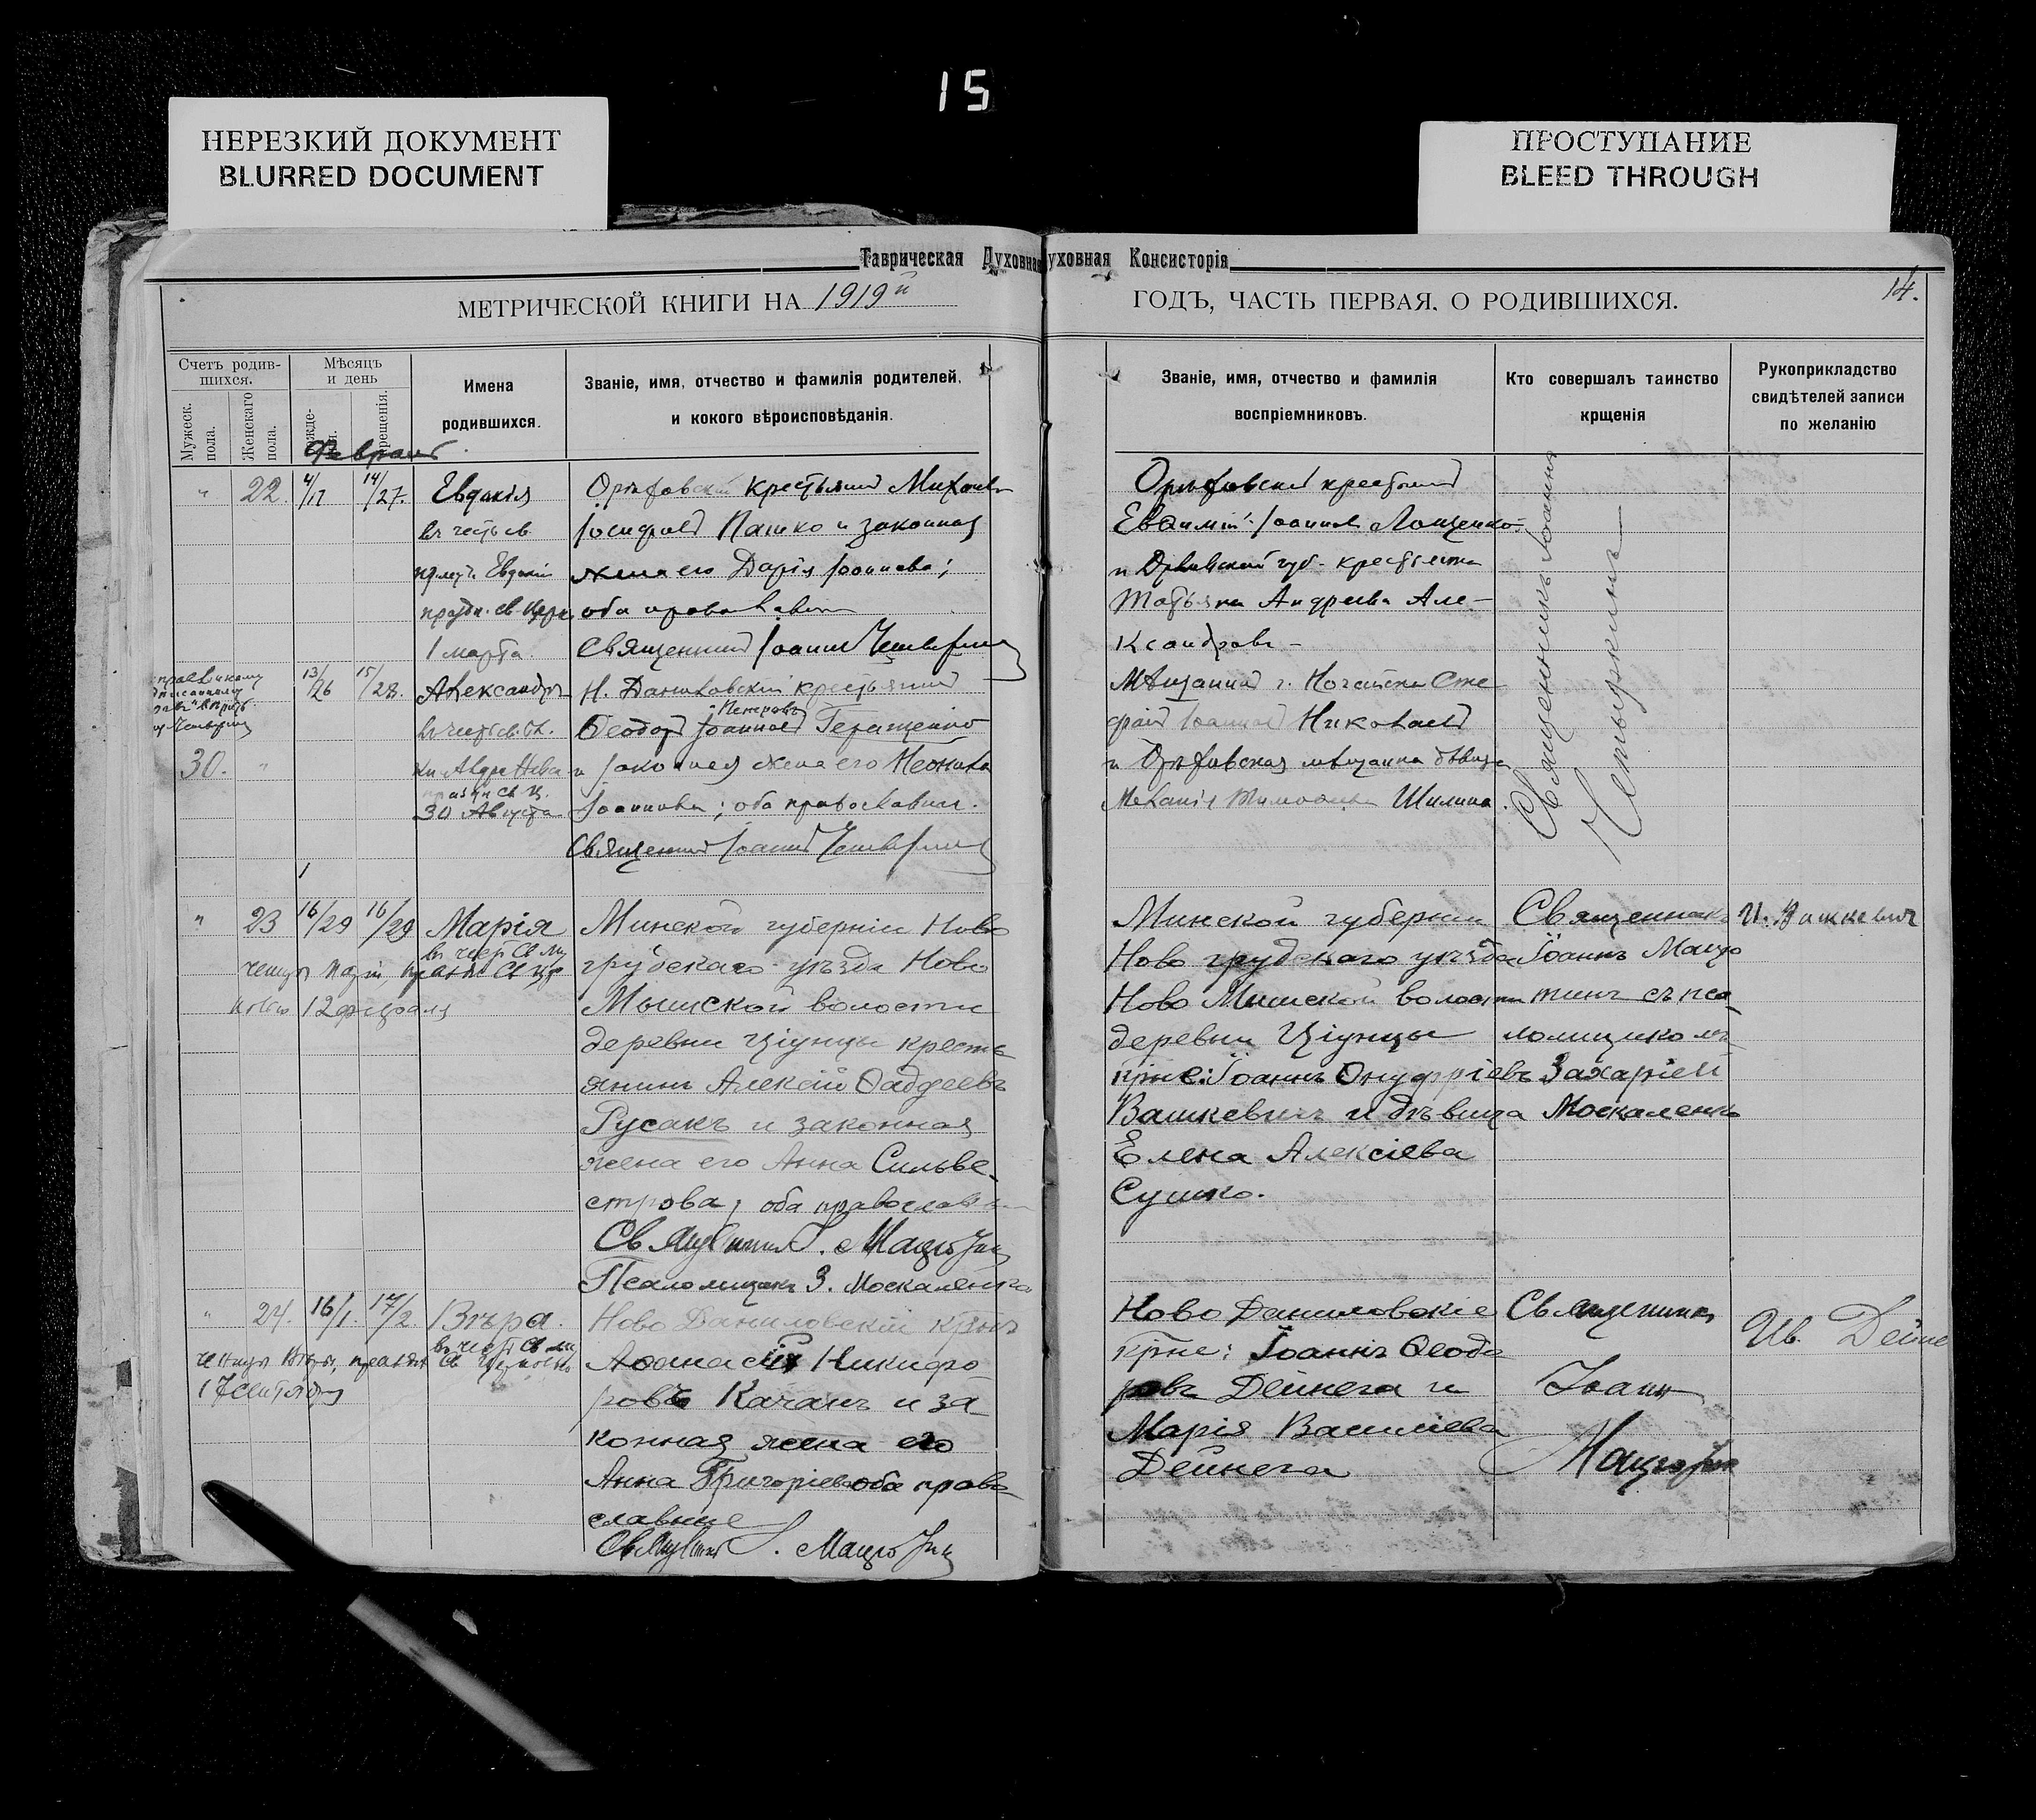 15
НЕРЕЗКИЙ ДОКУМЕНТ
BLURRED DOCUMENT
ПРОСТУПАНИЕ
BLEED THROUGH
Таврическая Духовная
уховная Консисторія
МЕТРИЧЕСКОЙ КНИГИ НА 1919й
ГОДЪ, ЧАСТЬ ПЕРВАЯ. О РОДИВШИХСЯ.
14.
Счетъ родив-
шихся.
Мужеск.
пола.
Женскаго
пола.
Мѣсяцъ
и день
крещенія.
Имена
родившихся.
Званіе, имя, отчество и фамилія родителей,
и кокого вѣроисповѣданія.
Званіе, имя, отчество и фамилія
воспріемниковъ.
Кто совершалъ таинство
крщенія
Рукоприкладство
свидѣтелей записи
по желанію
Февраль
" 22. 4/17 14/27. Евдокія
въ честь св.
Евдокіи
1 марта.
Орѣховскій крестьянинъ Михаилъ
Іосифовъ Пашко и законная
жена его Дарія Іоаннова;
оба православные
Священникъ Іоаннъ
Орѣховскій крестьянинъ
Евѳимій Іоанновъ Лощенко
и Орловской губ. крестьянка
Татьяна Андреева Але-
ксандрова
Священникъ Іоаннъ
30. " 13/26 15/28. Александръ
30 Августа
Н. Даниловскій крестьянинъ
Петровъ
Ѳеодоръ Іоанновъ Геращенко
и законная жена его Неонила
Іоаннова; оба православн.
Священникъ Іоаннъ
Мѣщанинъ г. Ногайска Сте
фанъ Іоанновъ Николаевъ
и Орѣховская мѣщанка дѣвица
Меланія Тимоѳеева Шилина.
" 23 16/29 16/29 Марія
въ чест Св му
12 февраля
Минской губерніи Ново
грудскаго уѣзда Ново
Мышской волости
деревни Ціунцы кресть
янинъ Алексій Ѳаддеевъ
Русакъ и законная
жена его Анна Сильве-
строва; оба православн
Псаломщикъ З. Москаленко
Минской губерніи
Ново грудскаго уѣзда
Ново Мышской волости
деревни Ціунцы
кр̃не: Іоаннъ Онуфріевъ
Вашкевичъ и дѣвица
Елена Алексіева
Сушко.
Священникъ
Іоаннъ Мацю
тинъ съ пса
ломщикомъ
Захаріей
Москаленко
И. Вашкевичъ
" 24. 16/1. 17/2. Вѣра.
въ чест Св му
ченицы Вѣры, празд Св Церковью
17 Сентября
Ново Даниловскій кр̃нъ
Аѳанасій Никифо
ровъ Качанъ и за
конная жена его
Анна Григоріева оба право
славные
Ново Даниловскіе
кр̃не: Іоаннъ Ѳеодо
ровъ Дейнега и
Марія Василіева
Дейнега
Священникъ
Іоаннъ
Ив. Дейне